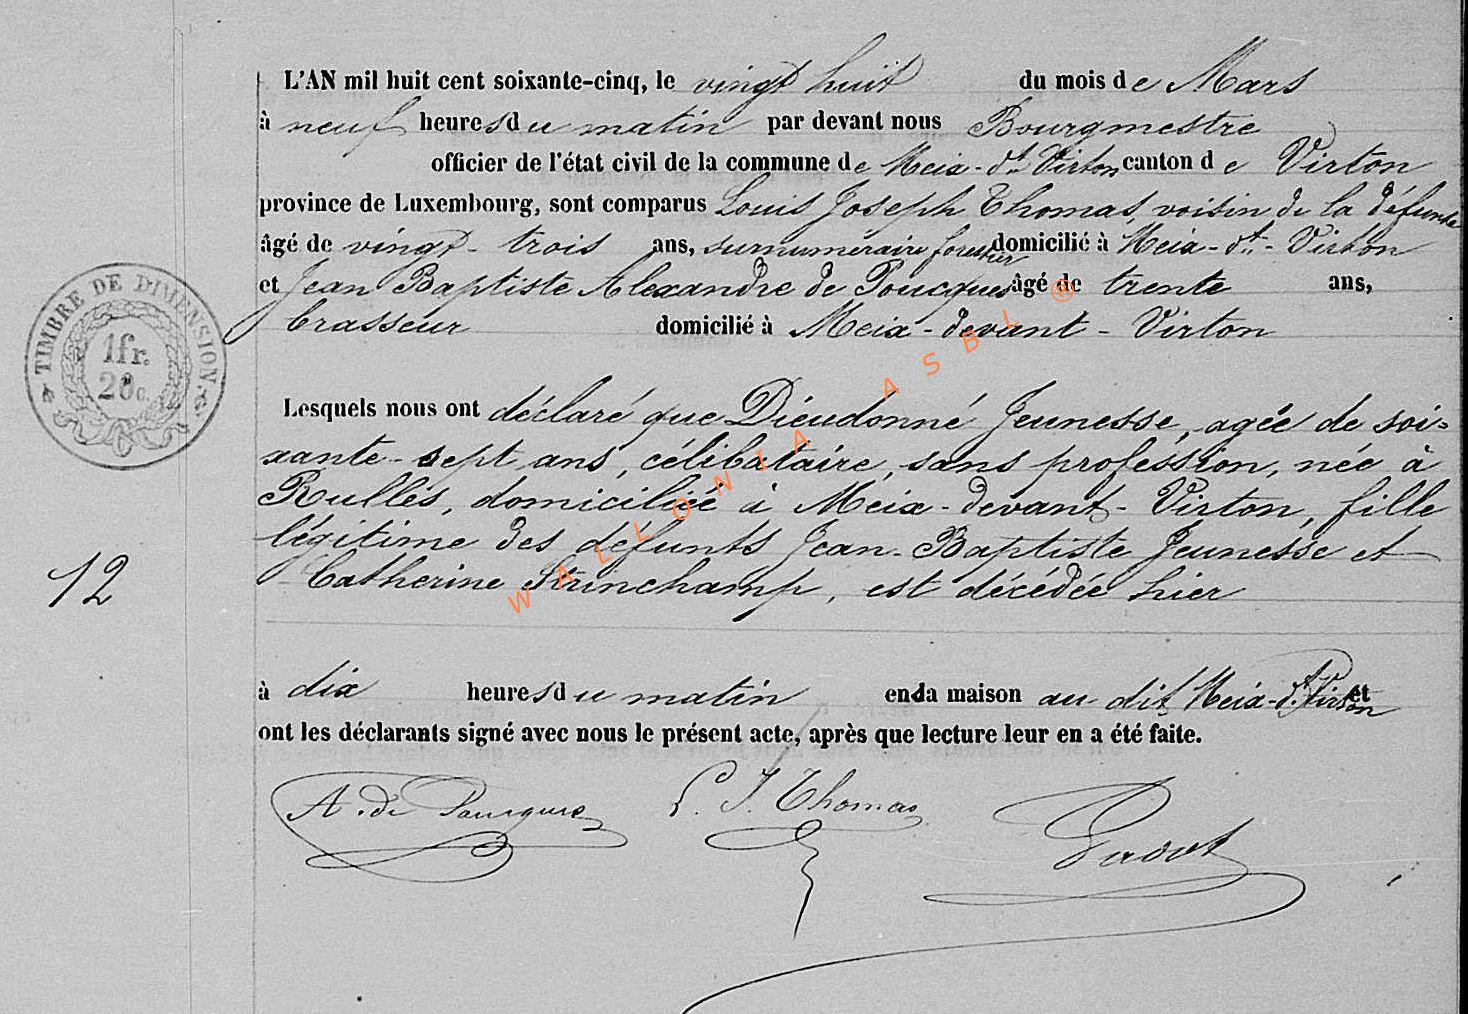 L'AN mil huit cent soixante-cinq, le vingt huit du mois de Mars
à neuf heures du matin par devant nous Bourgmestre
officier de l'état civil de la commune de Meix-dt Virton canton de Virton
province de Luxembourg, sont comparus Louis Joseph Thomas, voisin de la défunte
âgé de vingt-trois ans, surnuméraire forestier domicilié à Meix-dt-Virton
et Jean Baptiste Alexandre de Poucques âgé de trente ans,
brasseur domicilié à Meix-devant-Virton
TIMBRE DE DIMENSION
1 fr.
20 c.
Lesquels nous ont déclaré que Dieudonné Jeunesse, agée de soi=
xante-sept ans, célibataire, sans profession, née à
Rulles, domiciliée à Meix-devant-Virton, fille
légitime des défunts Jean-Baptiste Jeunesse et
Catherine Strinchamp, est décédée hier
12
à dix heures du matin en la maison au dit Meix-dt Virton et
ont les déclarants signé avec nous le présent acte, après que lecture leur en a été faite.
A. de Poucques L. J. Thomas
WALLONIA ASBL ®